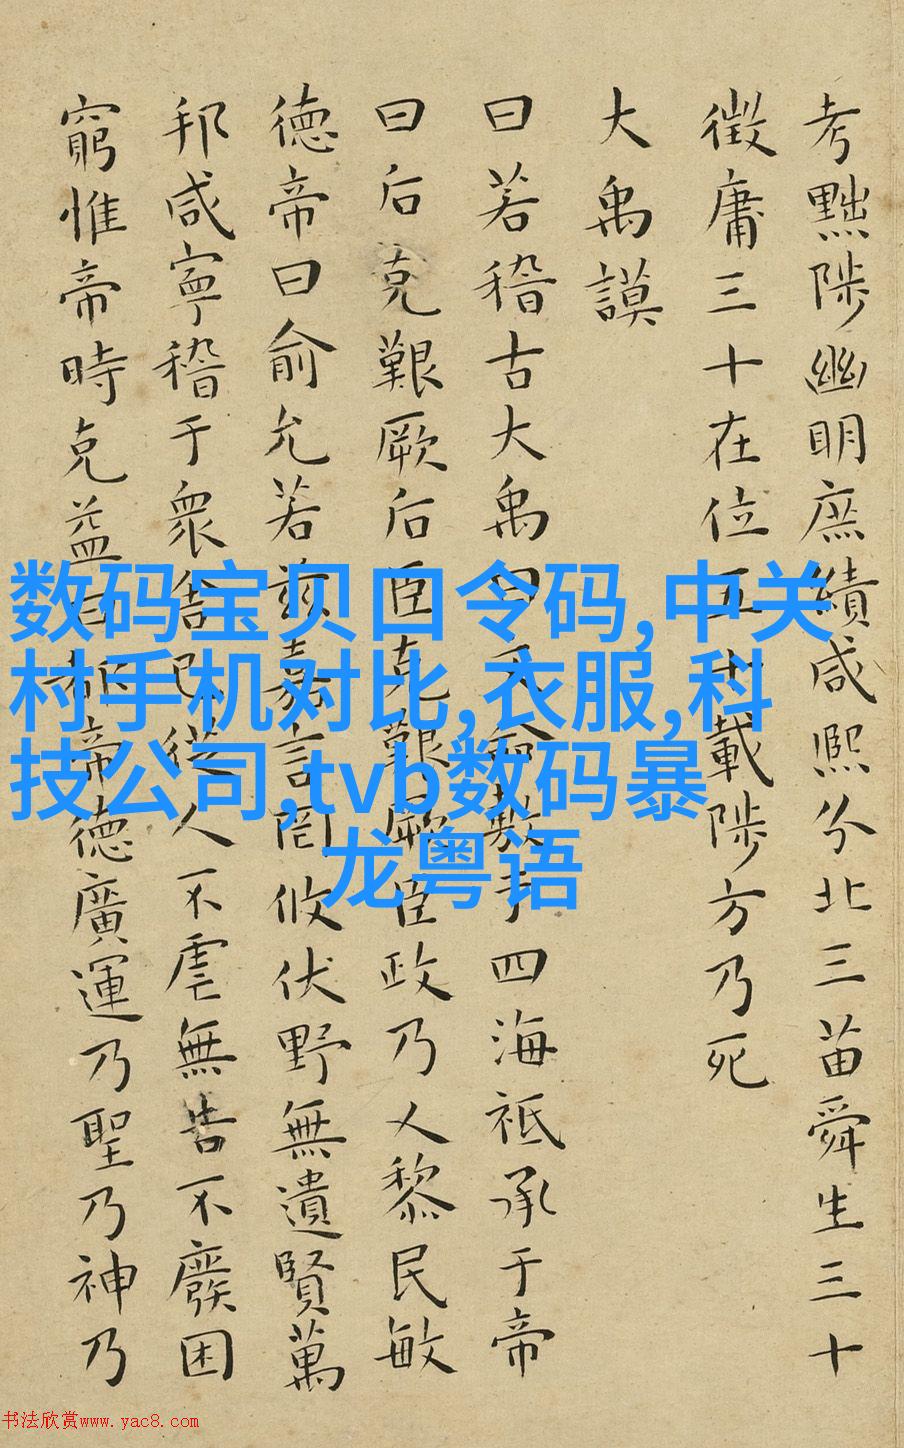 考黜陟幽明庶績咸熙分北三苗舜生三十
徵庸三十在位五十載陟方乃死
大禹謨
曰若稽古大禹曰文命敷于四海祗承于帝
曰后克艱厥后臣克艱厥臣政乃乂黎民敏
德帝曰俞允若茲嘉言罔攸伏野無遺賢萬
邦咸寧稽于眾舍己從人不虐無告不廢困
窮惟帝時克益曰都帝德廣運乃聖乃神乃
数码宝贝口令码,中关
村手机对比,衣服,科
技公司,tvb数码暴
龙粤语
书法欣赏www.yac8.com